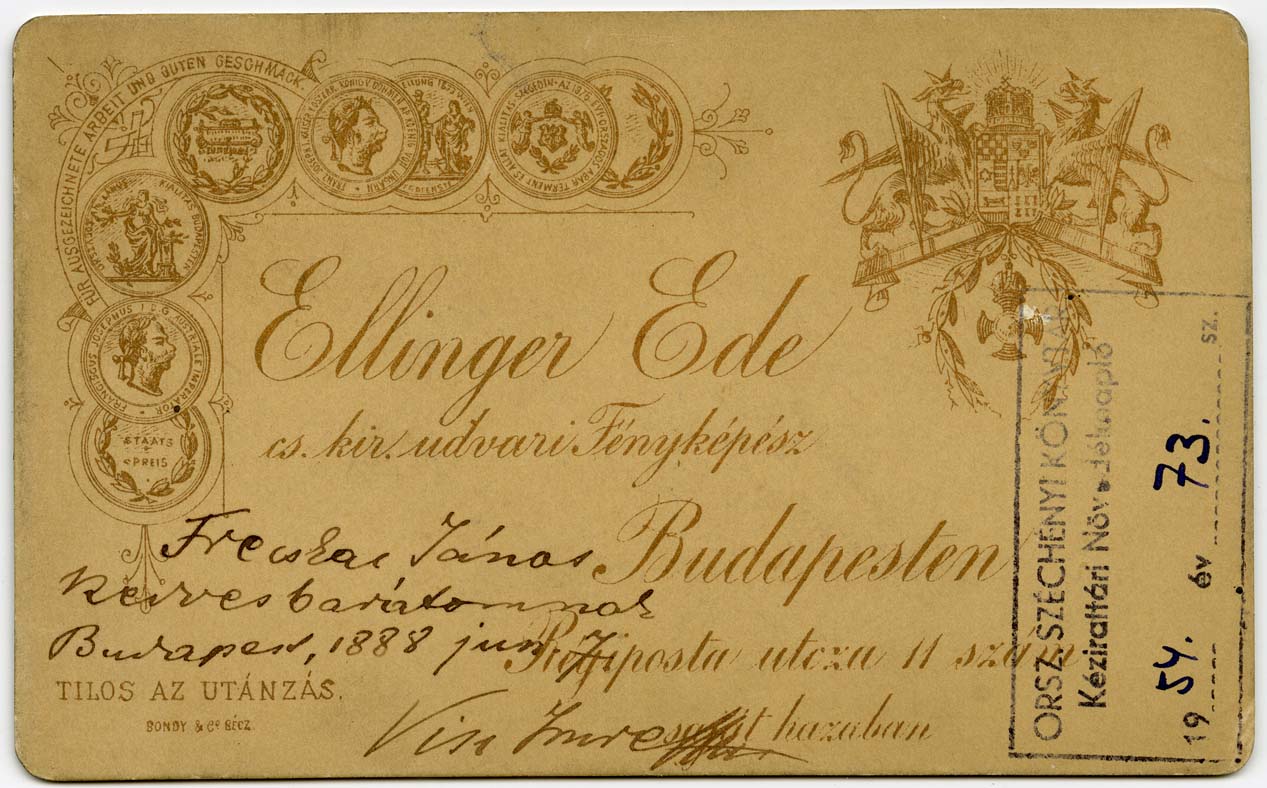 FÜR AUSGEZEICHNETE ARBEIT UND GUTEN GESCHMACK.
FRANCISCUS JOSEPHUS I D.G. AUSTRIAE IMPERATOR
STAATS
PREIS
Ellinger Ede
cs. kir. udvari Fényképész
Budapesten
Régiposta utcza 11 szám
saját házában
Frecskay János
kedves barátomnak
Budapest, 1888 jun. 7.
Imre
TILOS AZ UTÁNZÁS.
BONDY & Co BÉCZ.
ORSZ. SZÉCHÉNYI KÖNYVTÁR
Kézirattári Növedéknapló
1954. év 73. sz.